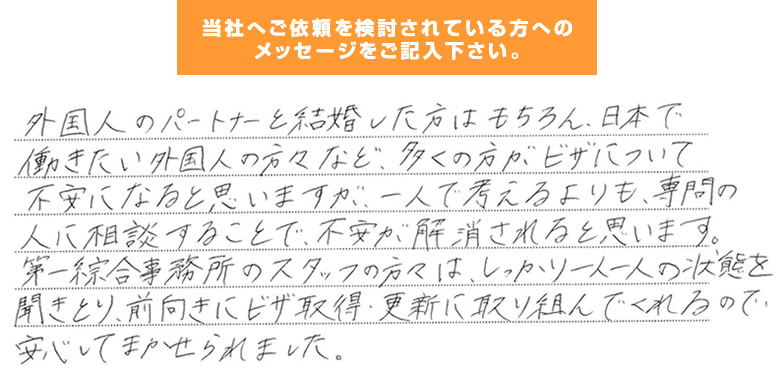 当社へご依頼を検討されている方への
メッセージをご記入下さい。
外国人のパートナーと結婚した方はもちろん、日本で
働きたい外国人の方々など、多くの方がビザについて
不安になると思いますが、一人で考えるよりも、専門の
人に相談することで、不安が解消されると思います。
第一綜合事務所のスタッフの方々は、しっかり一人一人の状態を
聞きとり、前向きにビザ取得・更新に取り組んでくれるので、
安心してまかせられました。